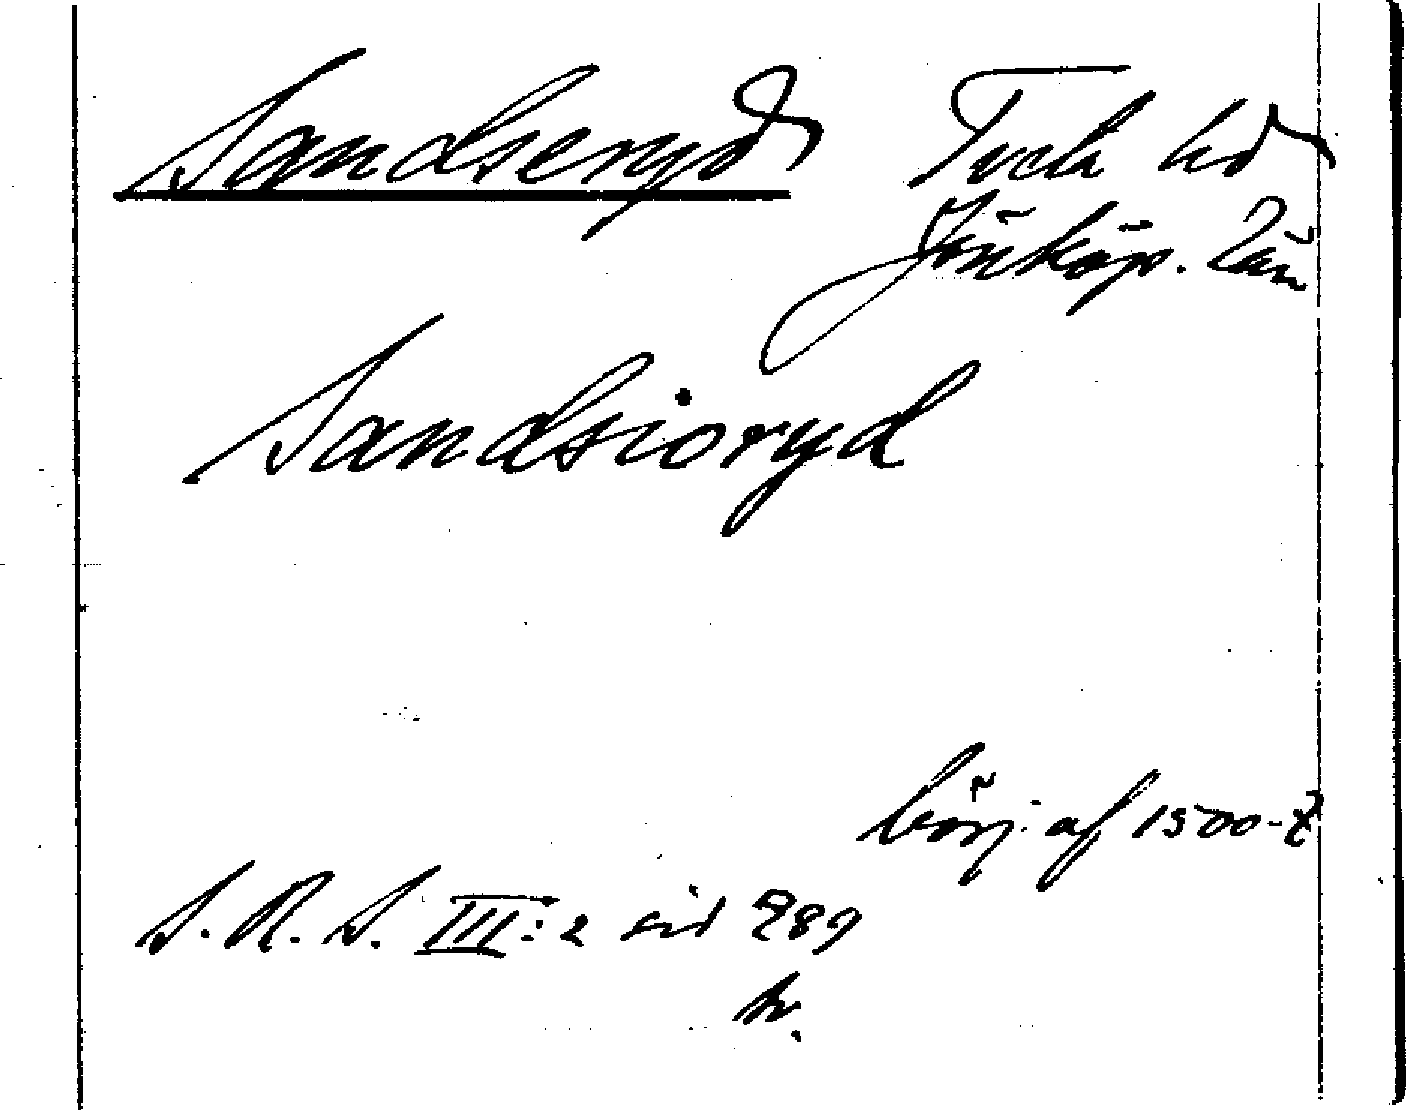 Sandseryd Tveta hd
Jönköp. län
Sandsioryd
börj. af 1500-t
S. R. S. III:2 sid 289
tr.